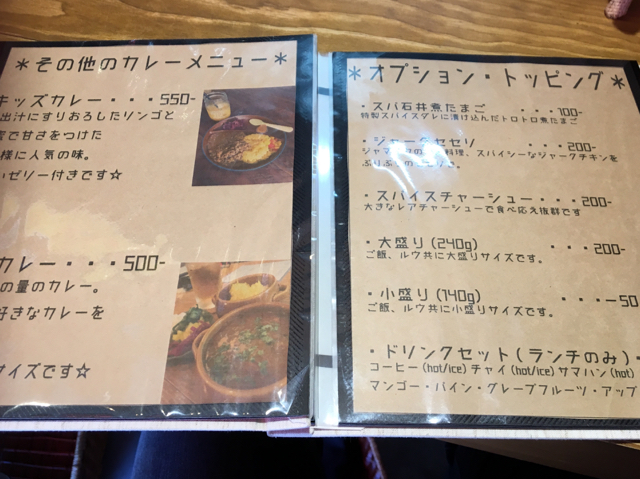 ＊その他のカレーメニュー＊
キッズカレー・・・550-
出汁にすりおろしたリンゴと
で甘さをつけた
様に人気の味。
ゼリー付きです☆
カレー・・・500-
の量のカレー。
好きなカレーを
サイズです☆
＊オプション・トッピング＊
・スパ石井煮たまご ・・・100-
特製スパイスダレに漬け込んだトロトロ煮たまご
・ジャークセセリ ・・・200-
料理、スパイシーなジャークチキンを
・スパイスチャーシュー・・・200-
大きなレアチャーシューで食べ応え抜群です
・大盛り(240g) ・・・200-
ご飯、ルウ共に大盛りサイズです。
・小盛り(140g) ・・・-50
ご飯、ルウ共に小盛りサイズです。
・ドリンクセット(ランチのみ)・
コーヒー(hot/ice)チャイ(hot/ice)サマハン(hot)
マンゴー・パイン・グレープフルーツ・アップ